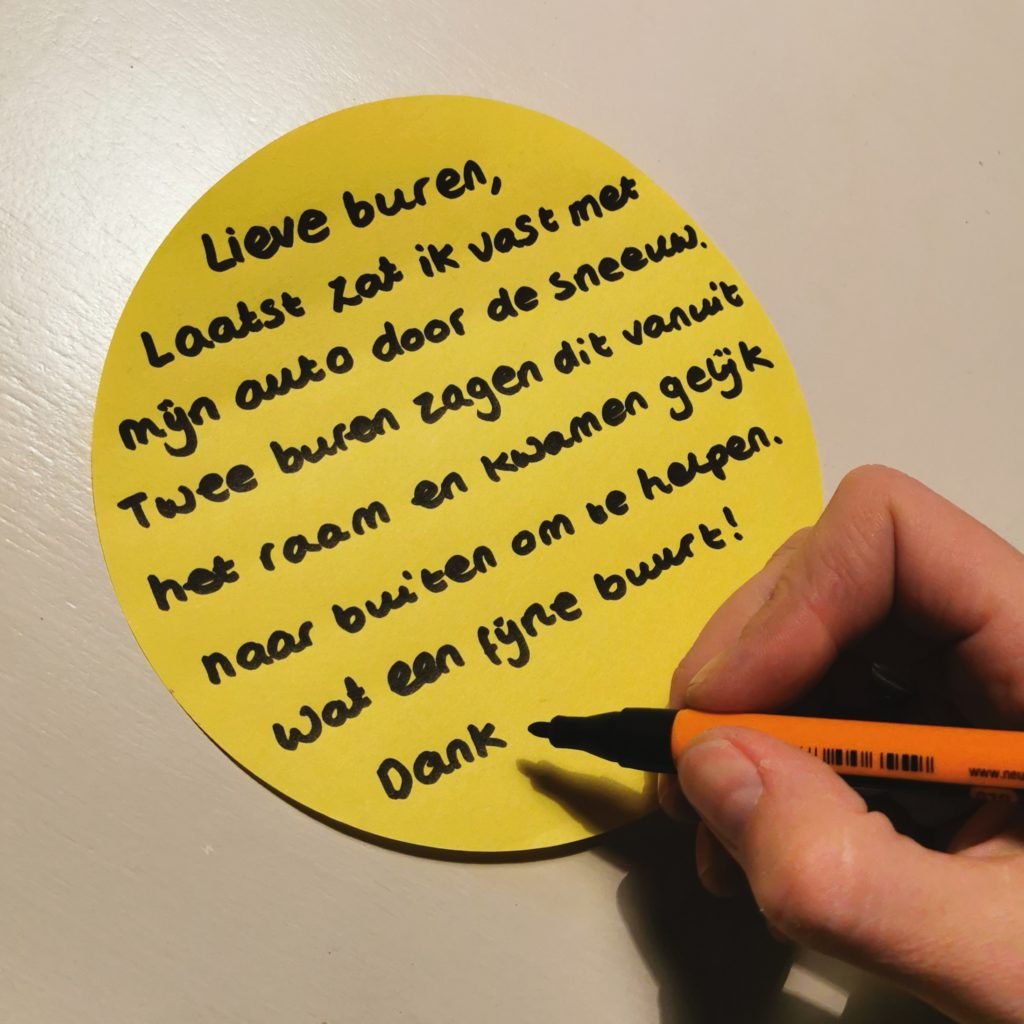 Lieve buren,
Laatst zat ik vast met
mijn auto door de sneeuw.
Twee buren zagen dit vanuit
het raam en kwamen gelijk
naar buiten om te helpen.
Wat een fijne buurt!
Dank
www.neu